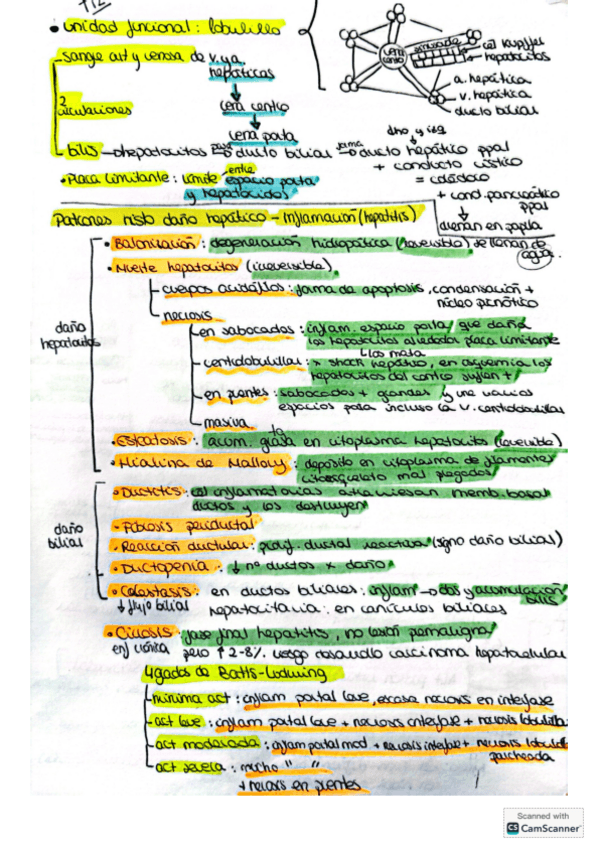 T12
• unidad funcional: lobulillo
sangre art y venosa de v. y a. hepáticas
2 circulaciones
vena centro
vena porta
bilis → hepatocitos → ducto bilial → forma ducto hepático ppal
dho. y izq
+ conducto cístico
= colédoco
+ cond. pancreático ppal
drenan en papila
• Placa limitante: límite entre espacio porta y hepatocitos
vena centro
sinusoide
cel Kupffer
hepatocitos
a. hepática
v. hepática
ducto bilial
Patrones histo daño hepático - Inflamación (hepatitis)
daño hepatocitos
• Balonización: degeneración hidrópica (reversible) se llenan de agua.
• Muerte hepatocitos (irreversible)
cuerpos acidófilos: forma de apoptosis, condensación + núcleo picnótico
necrosis
en sabocados: inflam. espacio porta que daña los hepatocitos alrededor placa limitante
los mata
centrolobulillar: x shock hepático, en isquemia los hepatocitos del centro sufren +
en puentes: sabocados + grandes y une varios espacios porta incluso la v. centrolobulillar
masiva
• Esteatosis: acum. grasa en citoplasma hepatocitos (reversible)
• Hialina de Mallory: depósito en citoplasma de filamentos citoesqueleto mal plegados
daño bilial
• Ductitis: cel inflamatorias atraviesan memb. basal ductos y los destruyen
• Fibrosis periductal
• Reacción ductular: prolif. ductal reactiva (signo daño bilial)
• Ductopenia: ↓ nº ductos x daño
• Colestasis: en ductos biliares: inflam → dos y acumulación bilis
↓ flujo bilial
hepatocitaria: en canículos biliares
• Cirrosis: fase final hepatitis, no lesión premaligna
enf crónica
pero ↑ 2-8% riesgo desarrollo carcinoma hepatocelular
4 grados de Batts-Ludwing
mínima act: inflam portal leve, escasa necrosis en interfase
act leve: inflam portal leve + necrosis interfase + necrosis lobulilla
act moderada: inflam portal mod + necrosis interfase + necrosis lobulill parcheada
act severa: mucho " "
+ necrosis en puentes
1
Scanned with
CS CamScanner